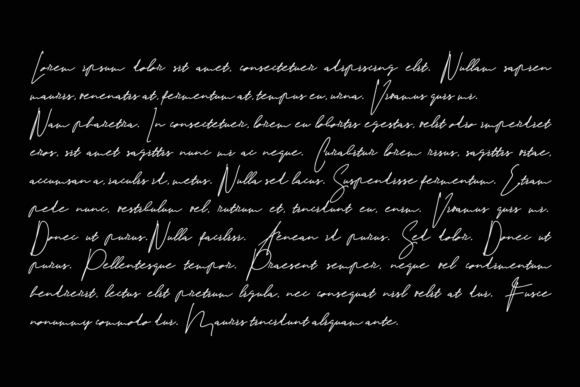 Lorem ipsum dolor sit amet, consectetuer adipiscing elit. Nullam sapien
mauris, venenatis at, fermentum at, tempus eu, urna. Vivamus quis mi.
Nam pharetra. In consectetuer, lorem eu lobortis egestas, velit odio imperdiet
eros, sit amet sagittis nunc mi ac neque. Curabitur lorem risus, sagittis vitae,
accumsan a, iaculis id, metus. Nulla sed lacus. Suspendisse fermentum. Etiam
pede nunc, vestibulum vel, rutrum et, tincidunt eu, enim. Vivamus quis mi.
Donec ut purus. Nulla facilisi. Aenean id purus. Sed dolor. Donec ut
purus. Pellentesque tempor. Praesent semper, neque vel condimentum
hendrerit, lectus elit pretium ligula, nec consequat nisl velit at dui. Fusce
nonummy commodo dui. Mauris tincidunt aliquam ante.